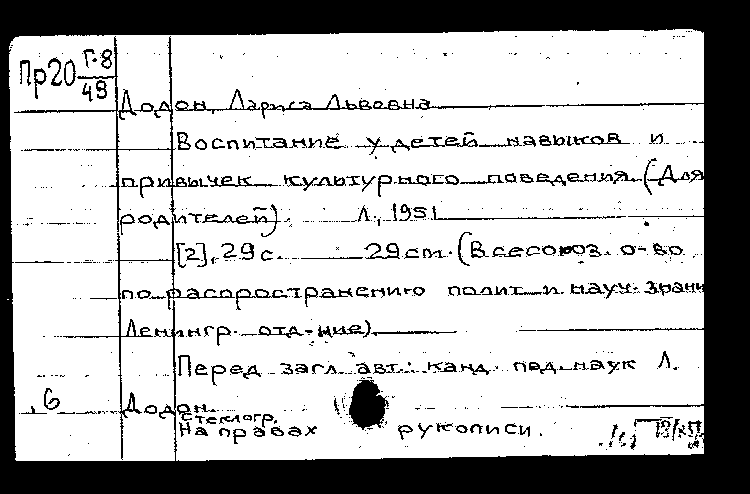 Пр20 Г-8
49
Додон, Лариса Львовна
Воспитание у детей навыков и
привычек культурного поведения. (Для
родителей). Л., 1951
[2], 29 с. 29 см. (Всесоюз. о-во
по распространению полит. и науч. знани
Ленингр. отд-ние).
Перед загл. авт.: канд. пед. наук Л.
Додон.
стеклогр.
На правах рукописи.